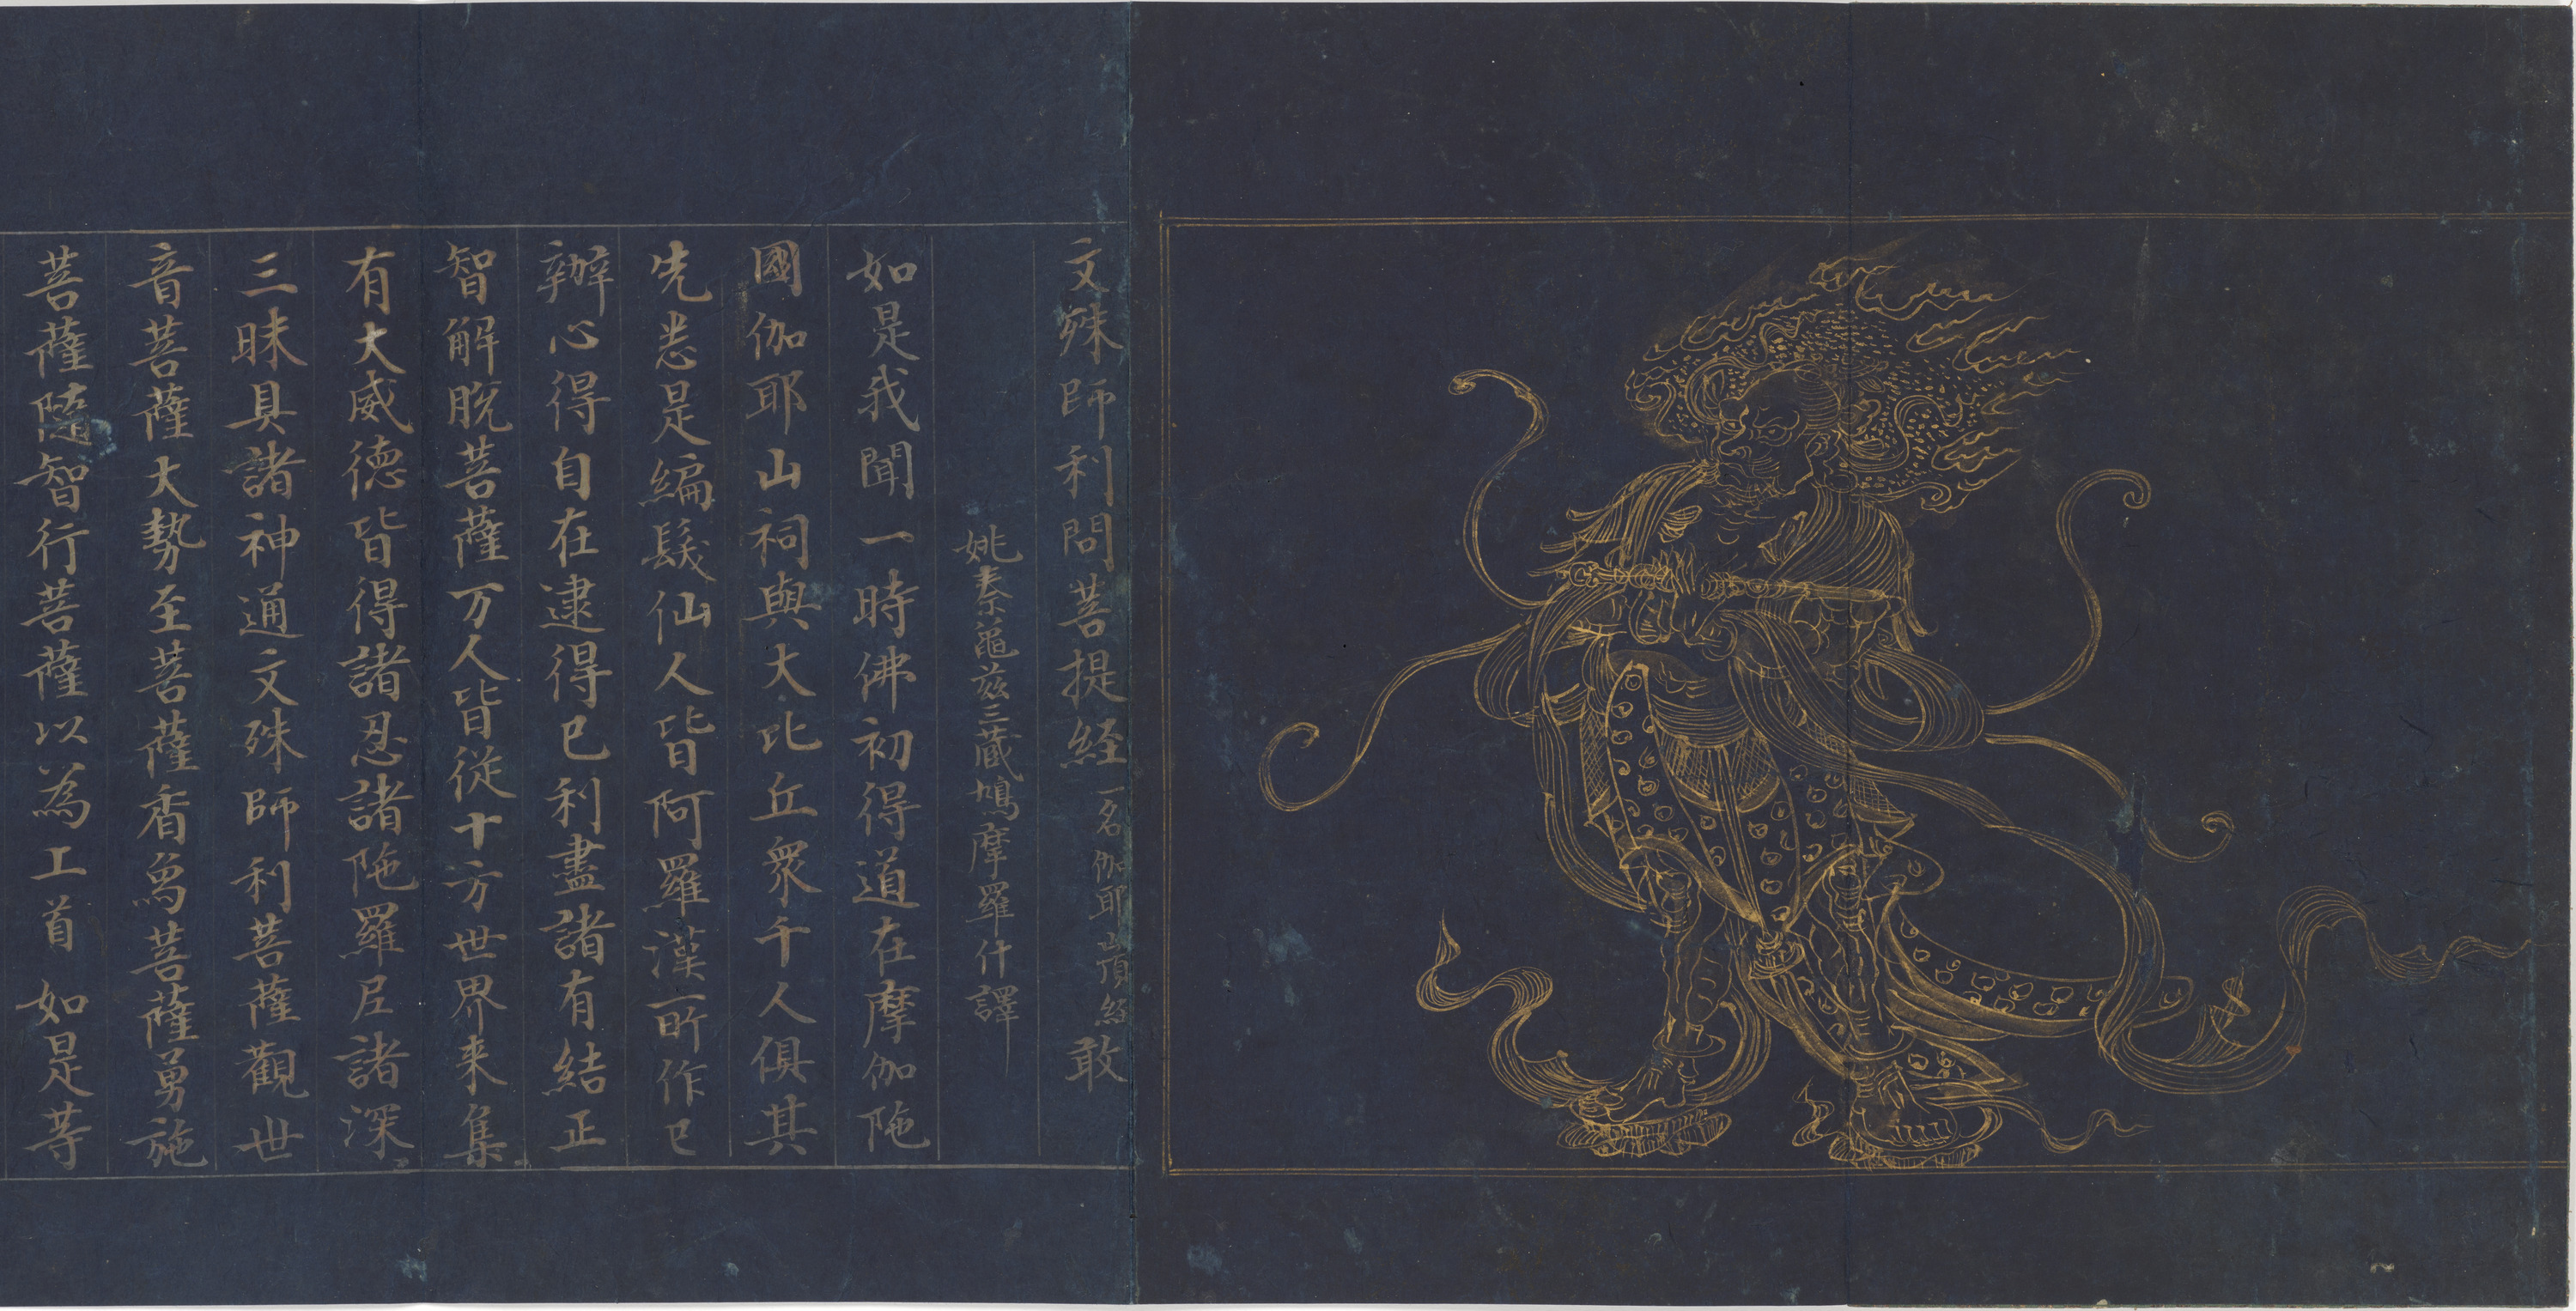 文殊師利問菩提経 一名伽耶山頂経 敢
姚秦龜茲三蔵鳩摩羅什譯
如是我聞一時佛初得道在摩伽陁
國伽耶山祠與大比丘衆千人俱其
先悉是編髮仙人皆阿羅漢所作已
辦心得自在逮得已利盡諸有結正
智解脫菩薩万人皆從十方世界来集
有大威德皆得諸忍諸陁羅尼諸深
三昧具諸神通文殊師利菩薩觀世
音菩薩大勢至菩薩香爲菩薩勇施
菩薩隨智行菩薩以為上首如是等